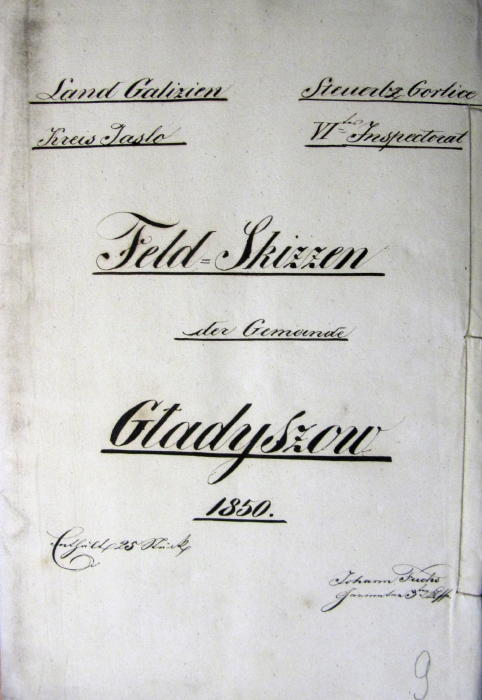 Land Galizien
Steuerbz Gorlice
Kreis Jaslo
VI tes Inspectorat
Feld=Skizzen
der Gemeinde
Gładyszow
1850.
Enthält 25 Stück
Johann Fuchs
Geometer 3ter
9